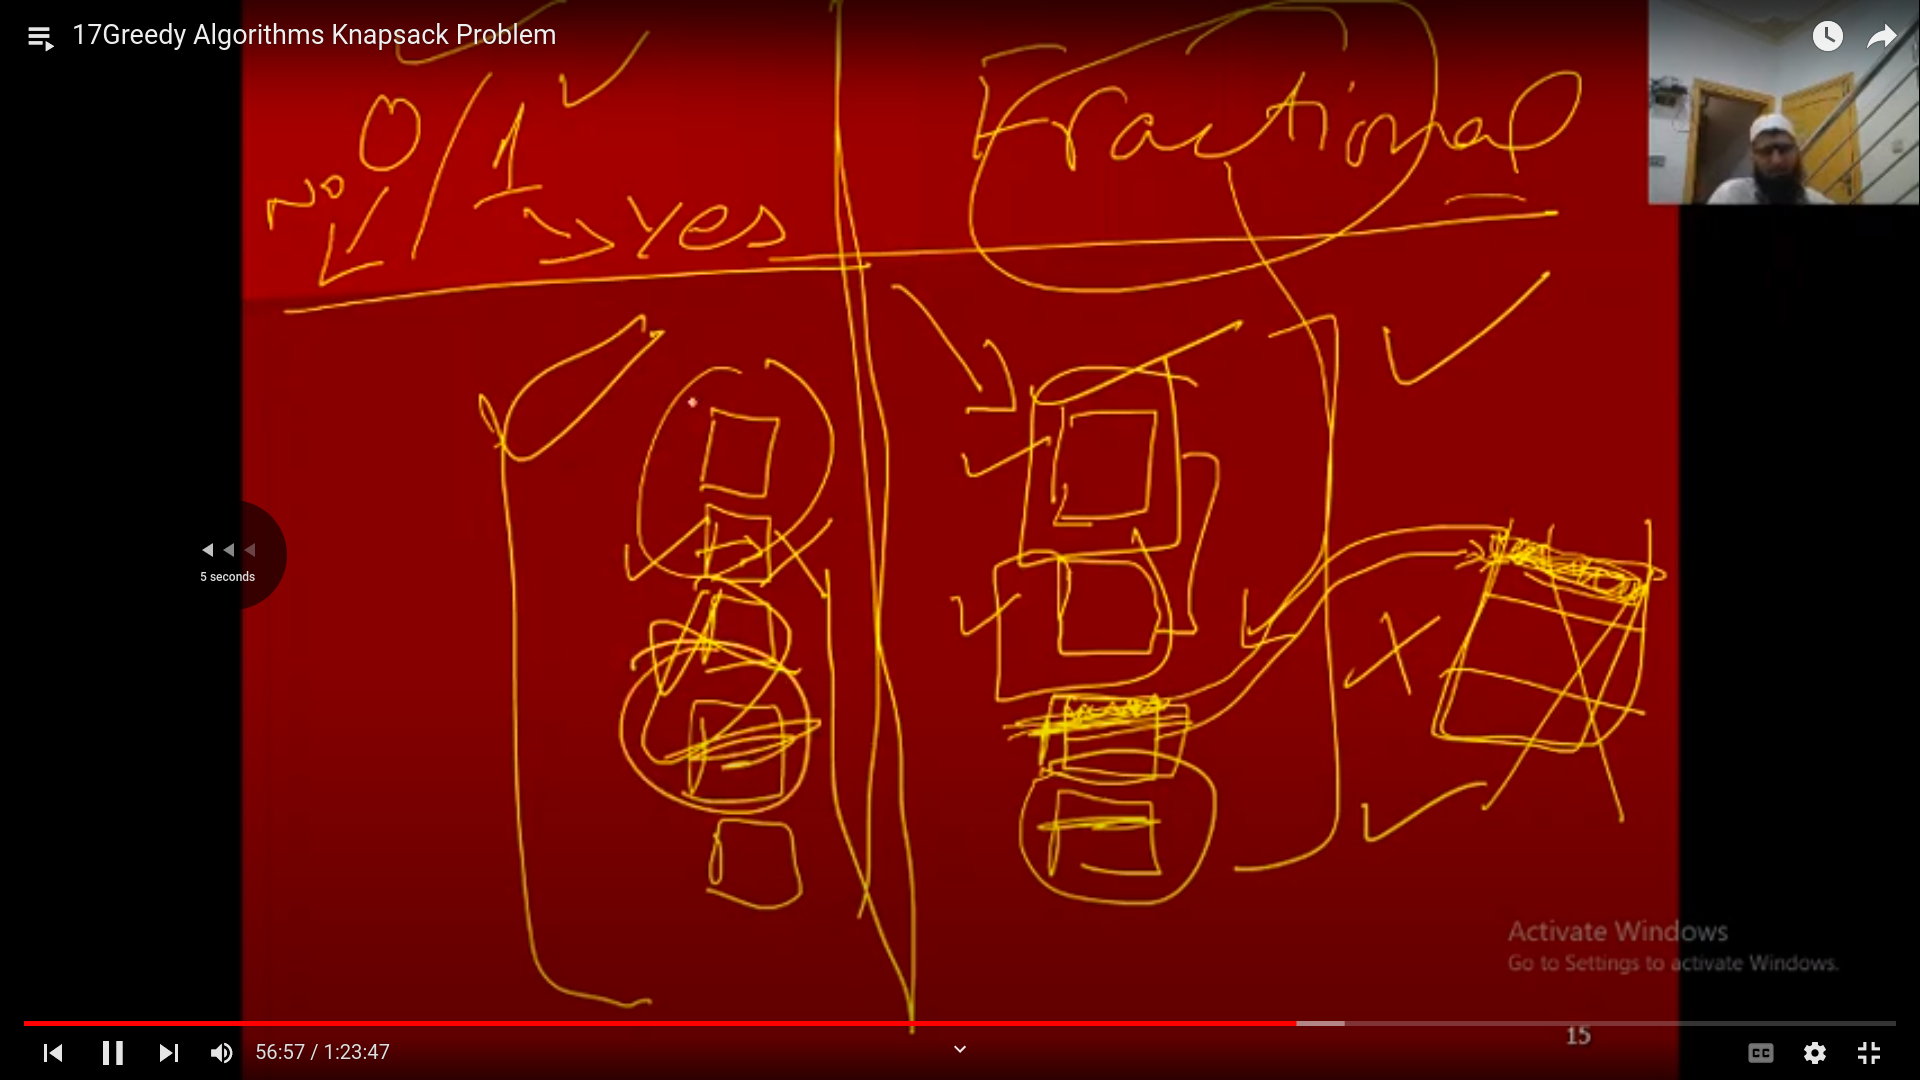 17Greedy Algorithms Knapsack Problem
0/1
Fractional
No
Yes
5 seconds
Activate Windows
Go to Settings to activate Windows.
15
56:57 / 1:23:47
CC